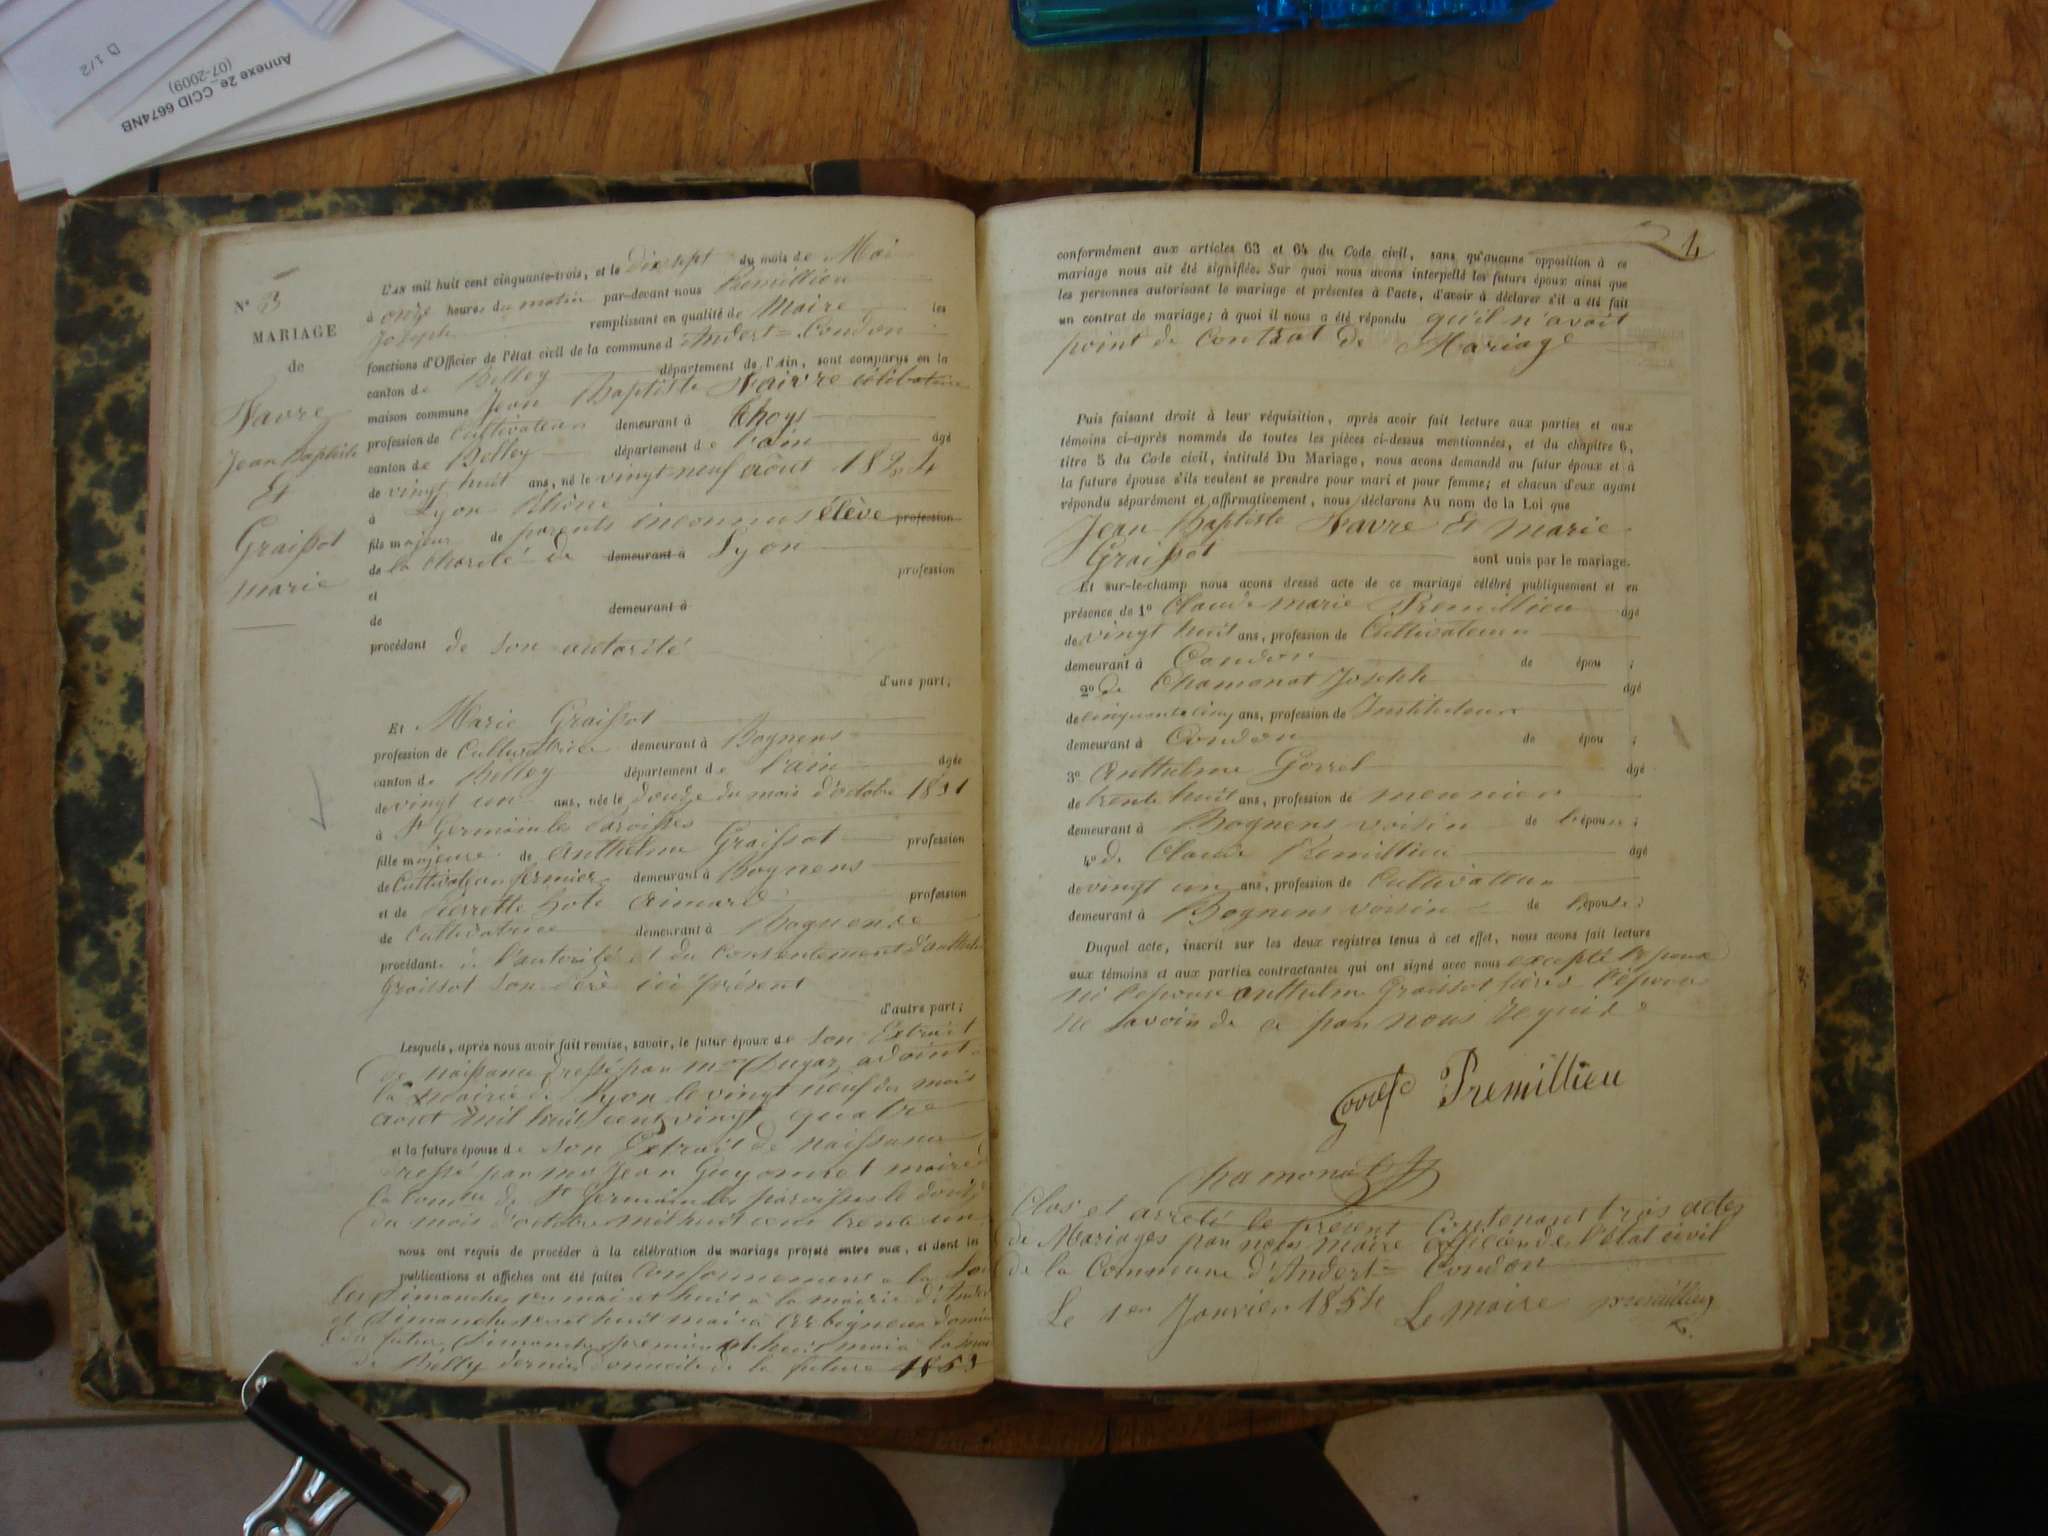 D 1/2
Annexe 2e_CCID 6674NB
(07-2009)
N° 3
MARIAGE
de
Favre
Jean Baptiste
Et
Graissot
marie
L'AN mil huit cent cinquante-trois, et le dix sept du mois de Mai
à onze heures du matin par-devant nous Premillieu
Joseph remplissant en qualité de Maire les
fonctions d'Officier de l'état civil de la commune d Andert-Condon
canton de Belley département de l'Ain, sont comparus en la
maison commune Jean Baptiste Faivre célibataire
profession de Cultivateur demeurant à
canton de Belley département de l'ain âgé
de vingt huit ans, né le vingt neuf août 1824
à Lyon Rhône
fils majeur de parents inconnus élève profession
de la charité de demeurant à Lyon
et profession
de demeurant à
procédant de son autorité
d'une part;
Et Marie Graissot
profession de Cultivatrice demeurant à Bognens
canton de Belley département de l'ain âgée
de vingt un ans, née le douze du mois d'octobre 1831
à St Germain les Paroisses
fille majeure de Anthelme Graissot profession
de Cultivateur fermier demeurant à Bognens
et de Pierrette Aimard profession
de Cultivatrice demeurant à
procédant de l'autorité et du Consentement d'anthelme
Graissot son père ici présent
d'autre part;
Lesquels, après nous avoir fait remise, savoir, le futur époux de son Extrait
de naissance dressé par mr adjoint à
la mairie de Lyon le vingt neuf du mois
août mil huit cent vingt quatre
et la future épouse de son Extrait de naissance
dressé par mr Jean Guyonnet maire de
la Comune de St Germain les paroisses le douze
du mois d'octobre mil huit cent trente un
nous ont requis de procéder à la célébration du mariage projeté entre eux, et dont les
publications et affiches ont été faites Conformément à la Loi
les Dimanches premier mai et huit à la mairie d'Andert
et Dimanche premier et huit mai à Arbignieu
du futur, Dimanche premier et huit mai à la mairie
de Belly dernier domicile de la future 1853
4
conformément aux articles 63 et 64 du Code civil, sans qu'aucune opposition à ce
mariage nous ait été signifiée. Sur quoi nous avons interpellé les futurs époux ainsi que
les personnes autorisant le mariage et présentes à l'acte, d'avoir à déclarer s'il a été fait
un contrat de mariage; à quoi il nous a été répondu qu'il n'avoit
point de Contrat de Mariage
Puis faisant droit à leur réquisition, après avoir fait lecture aux parties et aux
témoins ci-après nommés de toutes les pièces ci-dessus mentionnées, et du chapitre 6,
titre 5 du Code civil, intitulé Du Mariage, nous avons demandé au futur époux et à
la future épouse s'ils veulent se prendre pour mari et pour femme; et chacun d'eux ayant
répondu séparément et affirmativement, nous déclarons Au nom de la Loi que
Jean Baptiste Favre Et marie
Graissot sont unis par le mariage.
Et sur-le-champ nous avons dressé acte de ce mariage célébré publiquement et en
présence de 1° Claude marie Premillieu âgé
de vingt huit ans, profession de Cultivateur
demeurant à Condon de épou ;
2° de Chamonat Joseph âgé
de cinquante cinq ans, profession de Instituteur
demeurant à Condon de épou ;
3° Anthelme Gorrel âgé
de trente huit ans, profession de meunier
demeurant à Bognens voisin de l'épouse;
4° de Claude Premillieu âgé
de vingt un ans, profession de Cultivateur
demeurant à Bognens voisin de l'épouse;
Duquel acte, inscrit sur les deux registres tenus à cet effet, nous avons fait lecture
aux témoins et aux parties contractantes qui ont signé avec nous excepté l'epoux
ni l'epouse anthelme Graissot père l'épouse
ne Savoir de ce par nous requis
Premillieu
Chamonat
Clos et arreté le present Contenant trois actes
de Mariages par nous maire officier de l'état civil
de la Commune d'Andert-Condon
Le 1er Janvier 1854 Le maire premillieu